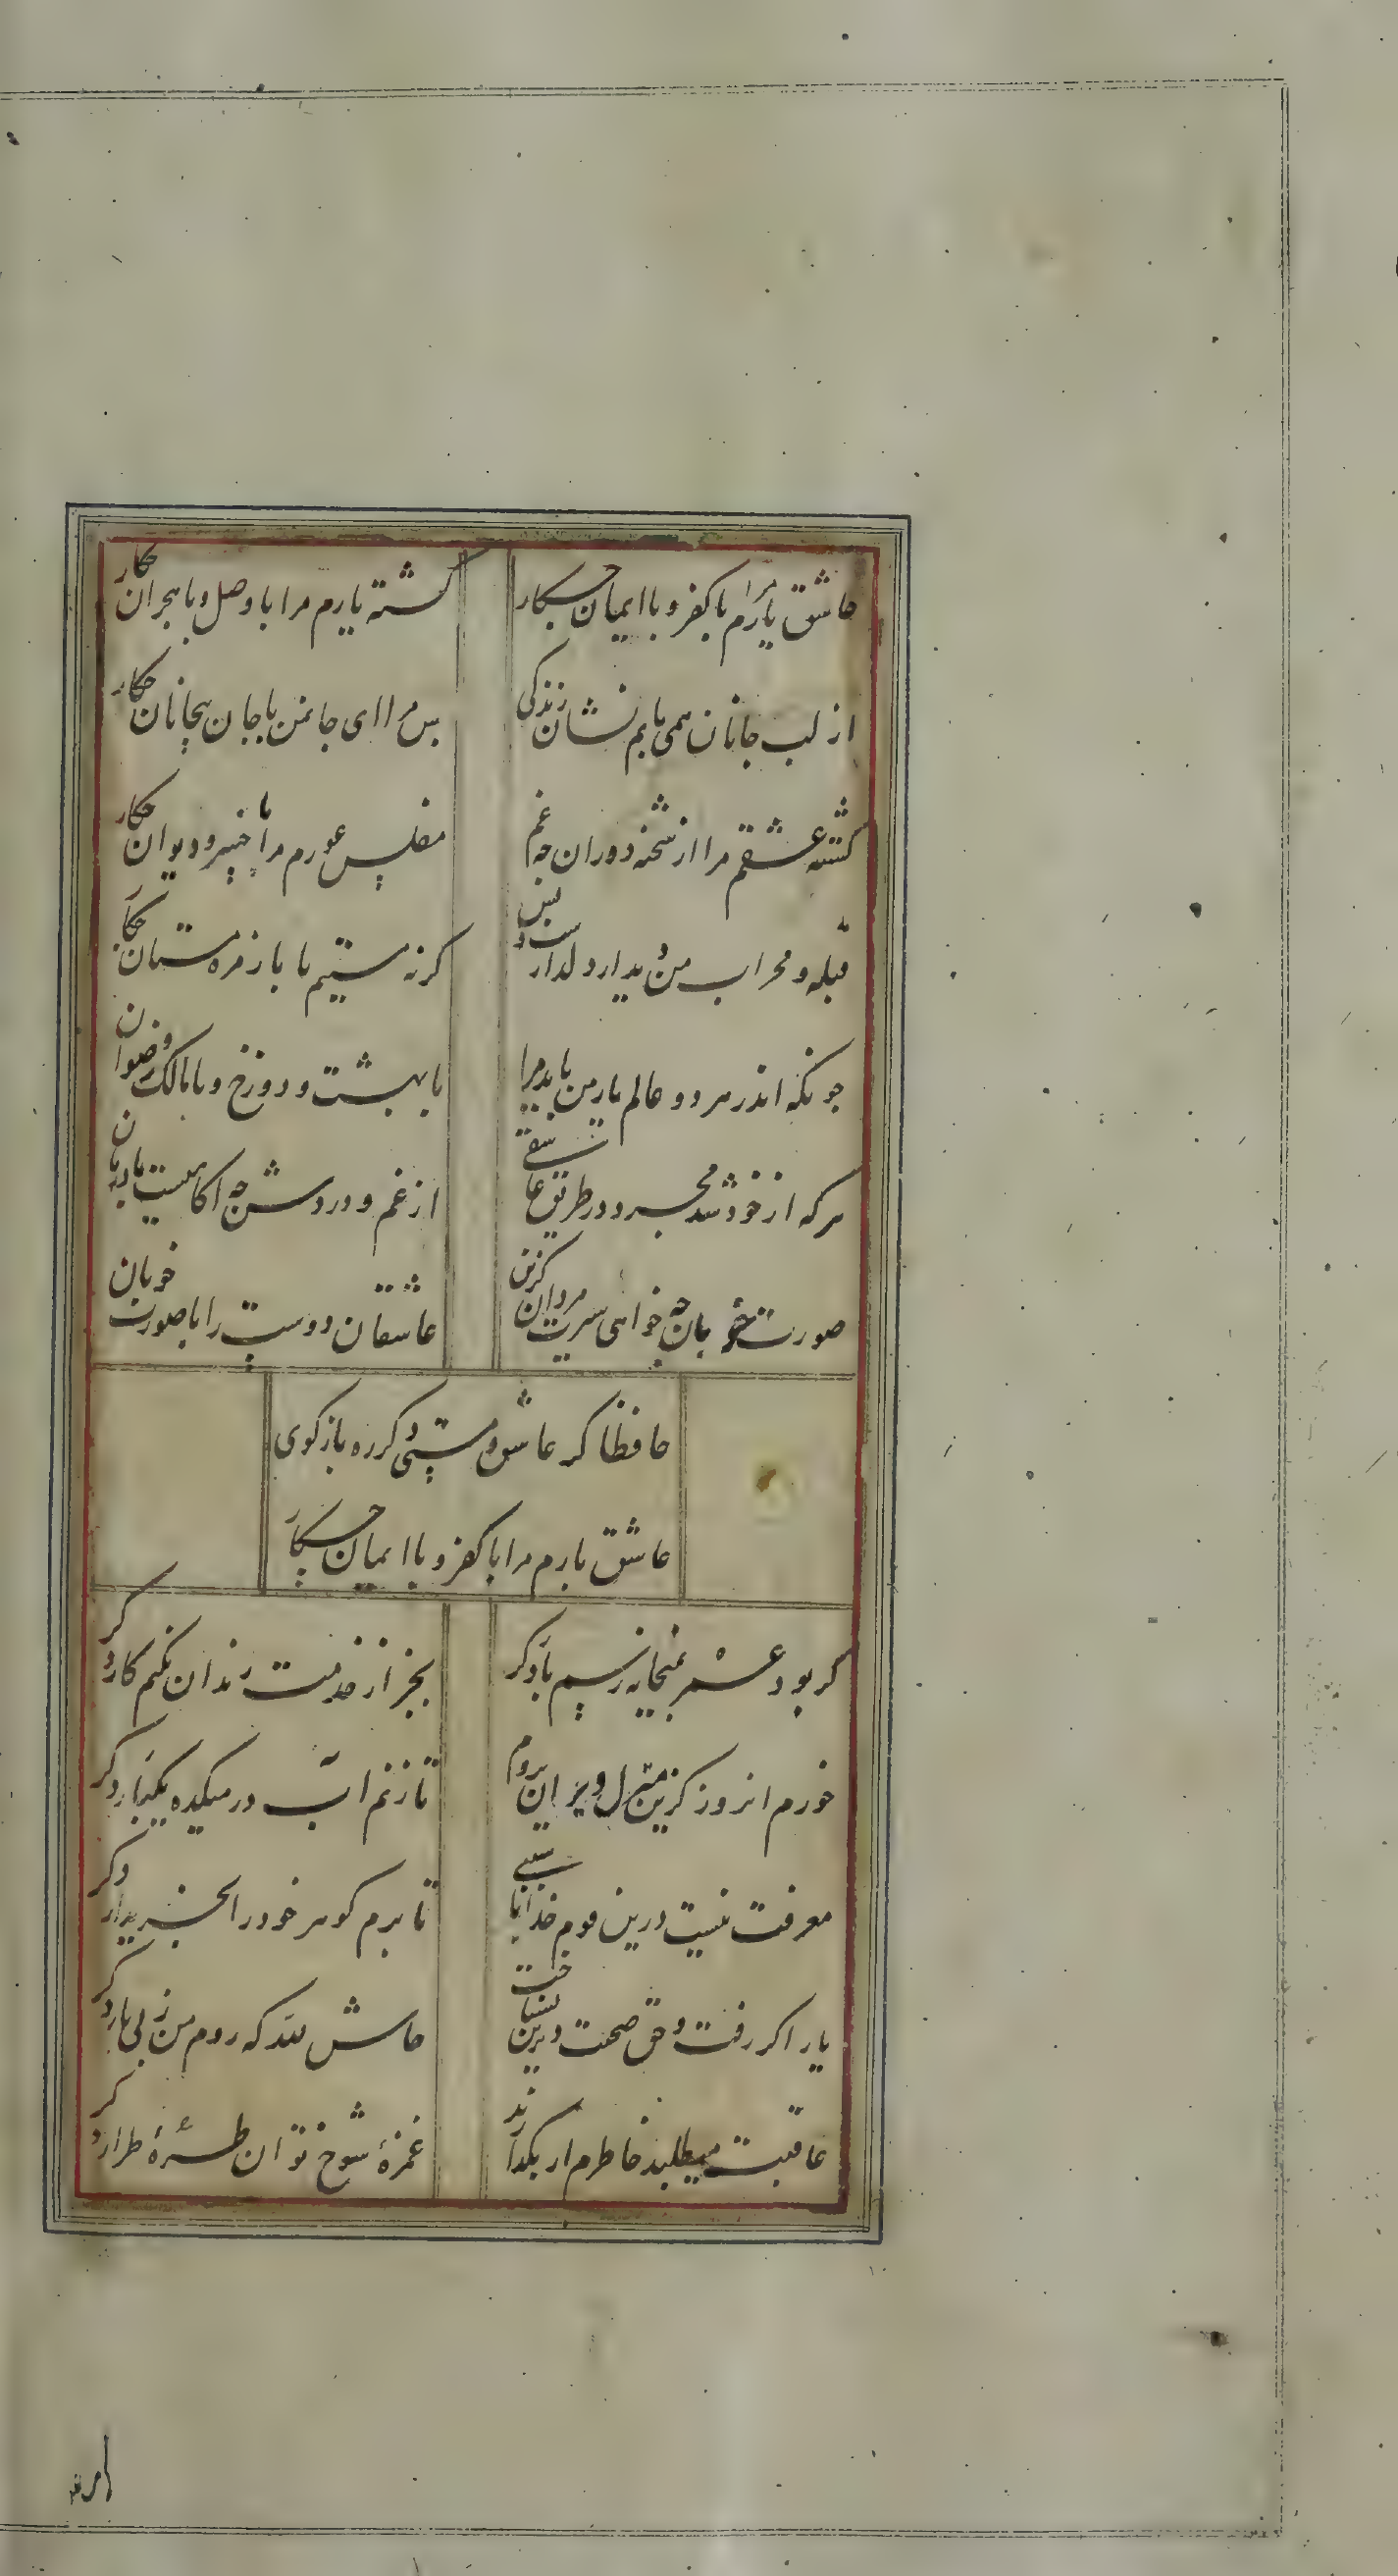 عاشق یارم مرا با کفر و با ایمان چکار
کشته یارم مرا با وصل و با هجران چکار
از لب جانان همی یابم نشان زندگی
پس مرا ای جان من با جان بیجانان چکار
کشته عشقم مرا از شحنه دوران چه غم
مفلس عورم مرا با خیر و دیوان چکار
قبله و محراب من دیدار دلدارست و بس
کر نه مستیم ما با زمره مستان چکار
چونکه اندر هر دو عالم یار من باید مرا
با بهشت و دوزخ و با مالک و رضوان
هر که از خود شد مجرد در طریق عاشقی
از غم و دردش چه آکاهیست
صورت خوبان چه خواهی سیرت مردان کزین
عاشقان دوست را با صورت خوبان
حافظا کر عاشق و مستی دکر ره باز کوی
عاشق یارم مرا با کفر و با ایمان چکار
کر بود عمر بمیخانه رسم بار دکر
بجز از خدمت رندان نکنم کار دکر
خورم انروز کزین منزل ویران بروم
تا زنم آب در میکده یکبار دکر
معرفت نیست درین قوم خدایا سببی
تا برم کوهر خود را بخریدار دکر
یار اکر رفت و حق صحبت دیرین نشناخت
حاش لله که روم من ز پی یار دکر
عاقبت میطلبد خاطرم ار بکذارند
غمزهٔ شوخ تو ان طرهٔ طرار دکر